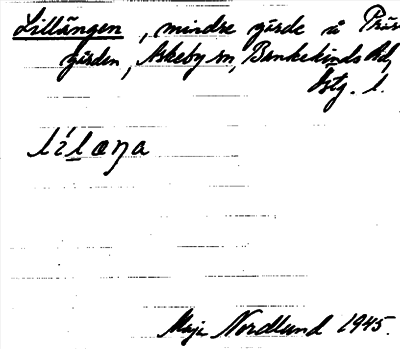 Lillängen, mindre gärde å Präst
gården, Askeby sn, Bankekinds hd,
Östg. l.
lílæŋa
Maja Nordlund 1945.